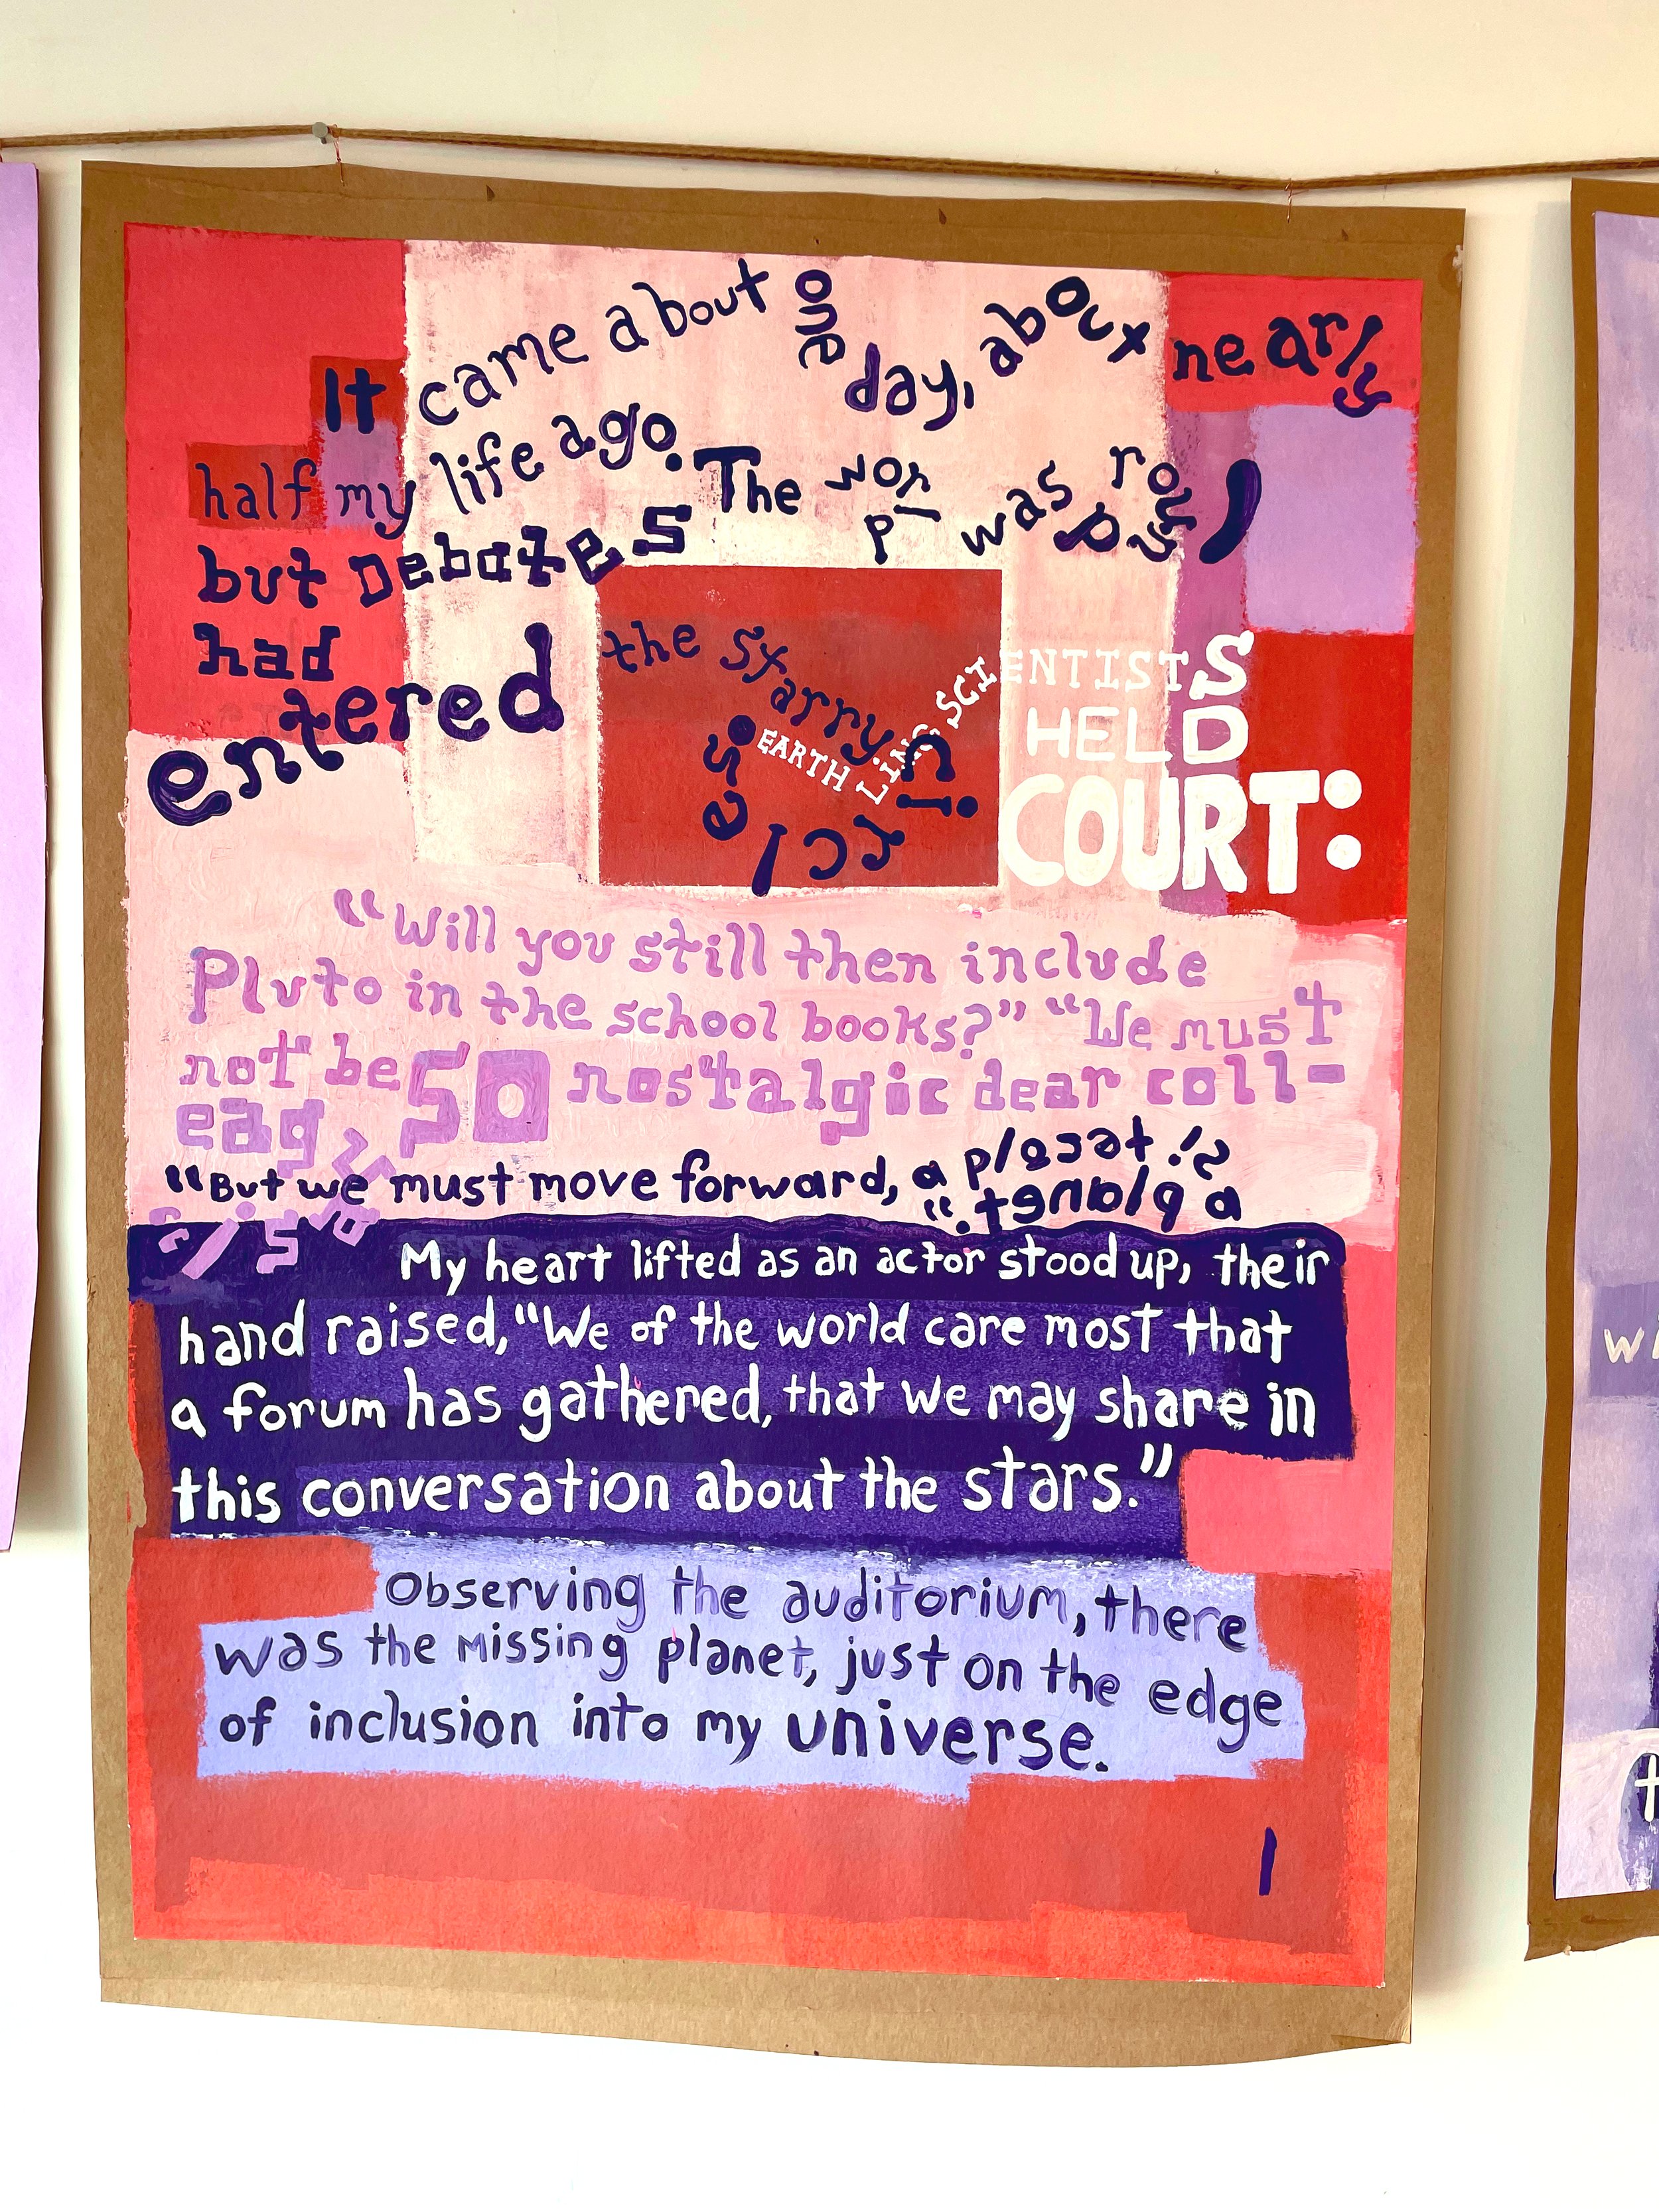 It came about one day, about nearly
half my life ago. The world was
but Debates
had entered the starry circles
EARTHLING SCIENTISTS
HELD
COURT:
“Will you still then include
Pluto in the school books?” “We must
not be so nostalgic dear coll-
eagues
“But we must move forward, a planet is
a planet.”
My heart lifted as an actor stood up, their
hand raised, “We of the world care most that
a forum has gathered, that we may share in
this conversation about the stars.”
Observing the auditorium, there
was the missing planet, just on the edge
of inclusion into my universe.
1